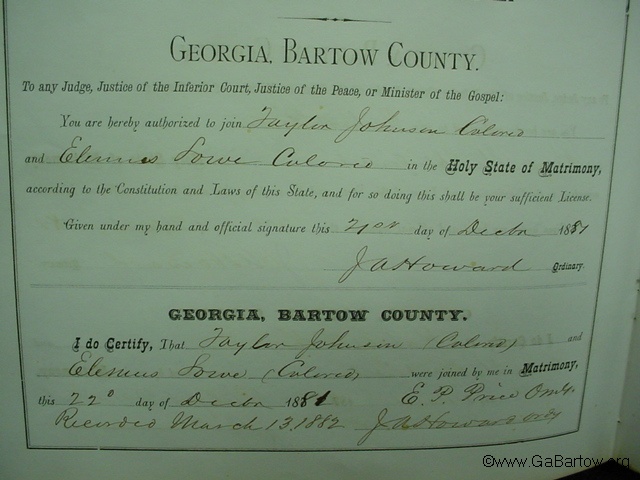 GEORGIA, BARTOW COUNTY.
To any Judge, Justice of the Inferior Court, Justice of the Peace, or Minister of the Gospel:
You are hereby authorized to join Taylor Johnson Colored
and Lowe Colored in the Holy State of Matrimony,
according to the Constitution and Laws of this State, and for so doing this shall be your sufficient License.
Given under my hand and official signature this 21st day of Decbr 1881
J A Howard Ordinary.
GEORGIA, BARTOW COUNTY.
I do Certify, That Taylor Johnson (Colored) and
Lowe (Colored) were joined by me in Matrimony,
this 22d day of Decbr 1881 E. P. Price
Recorded March 13, 1882 J A Howard Ordy
©www.GaBartow.org